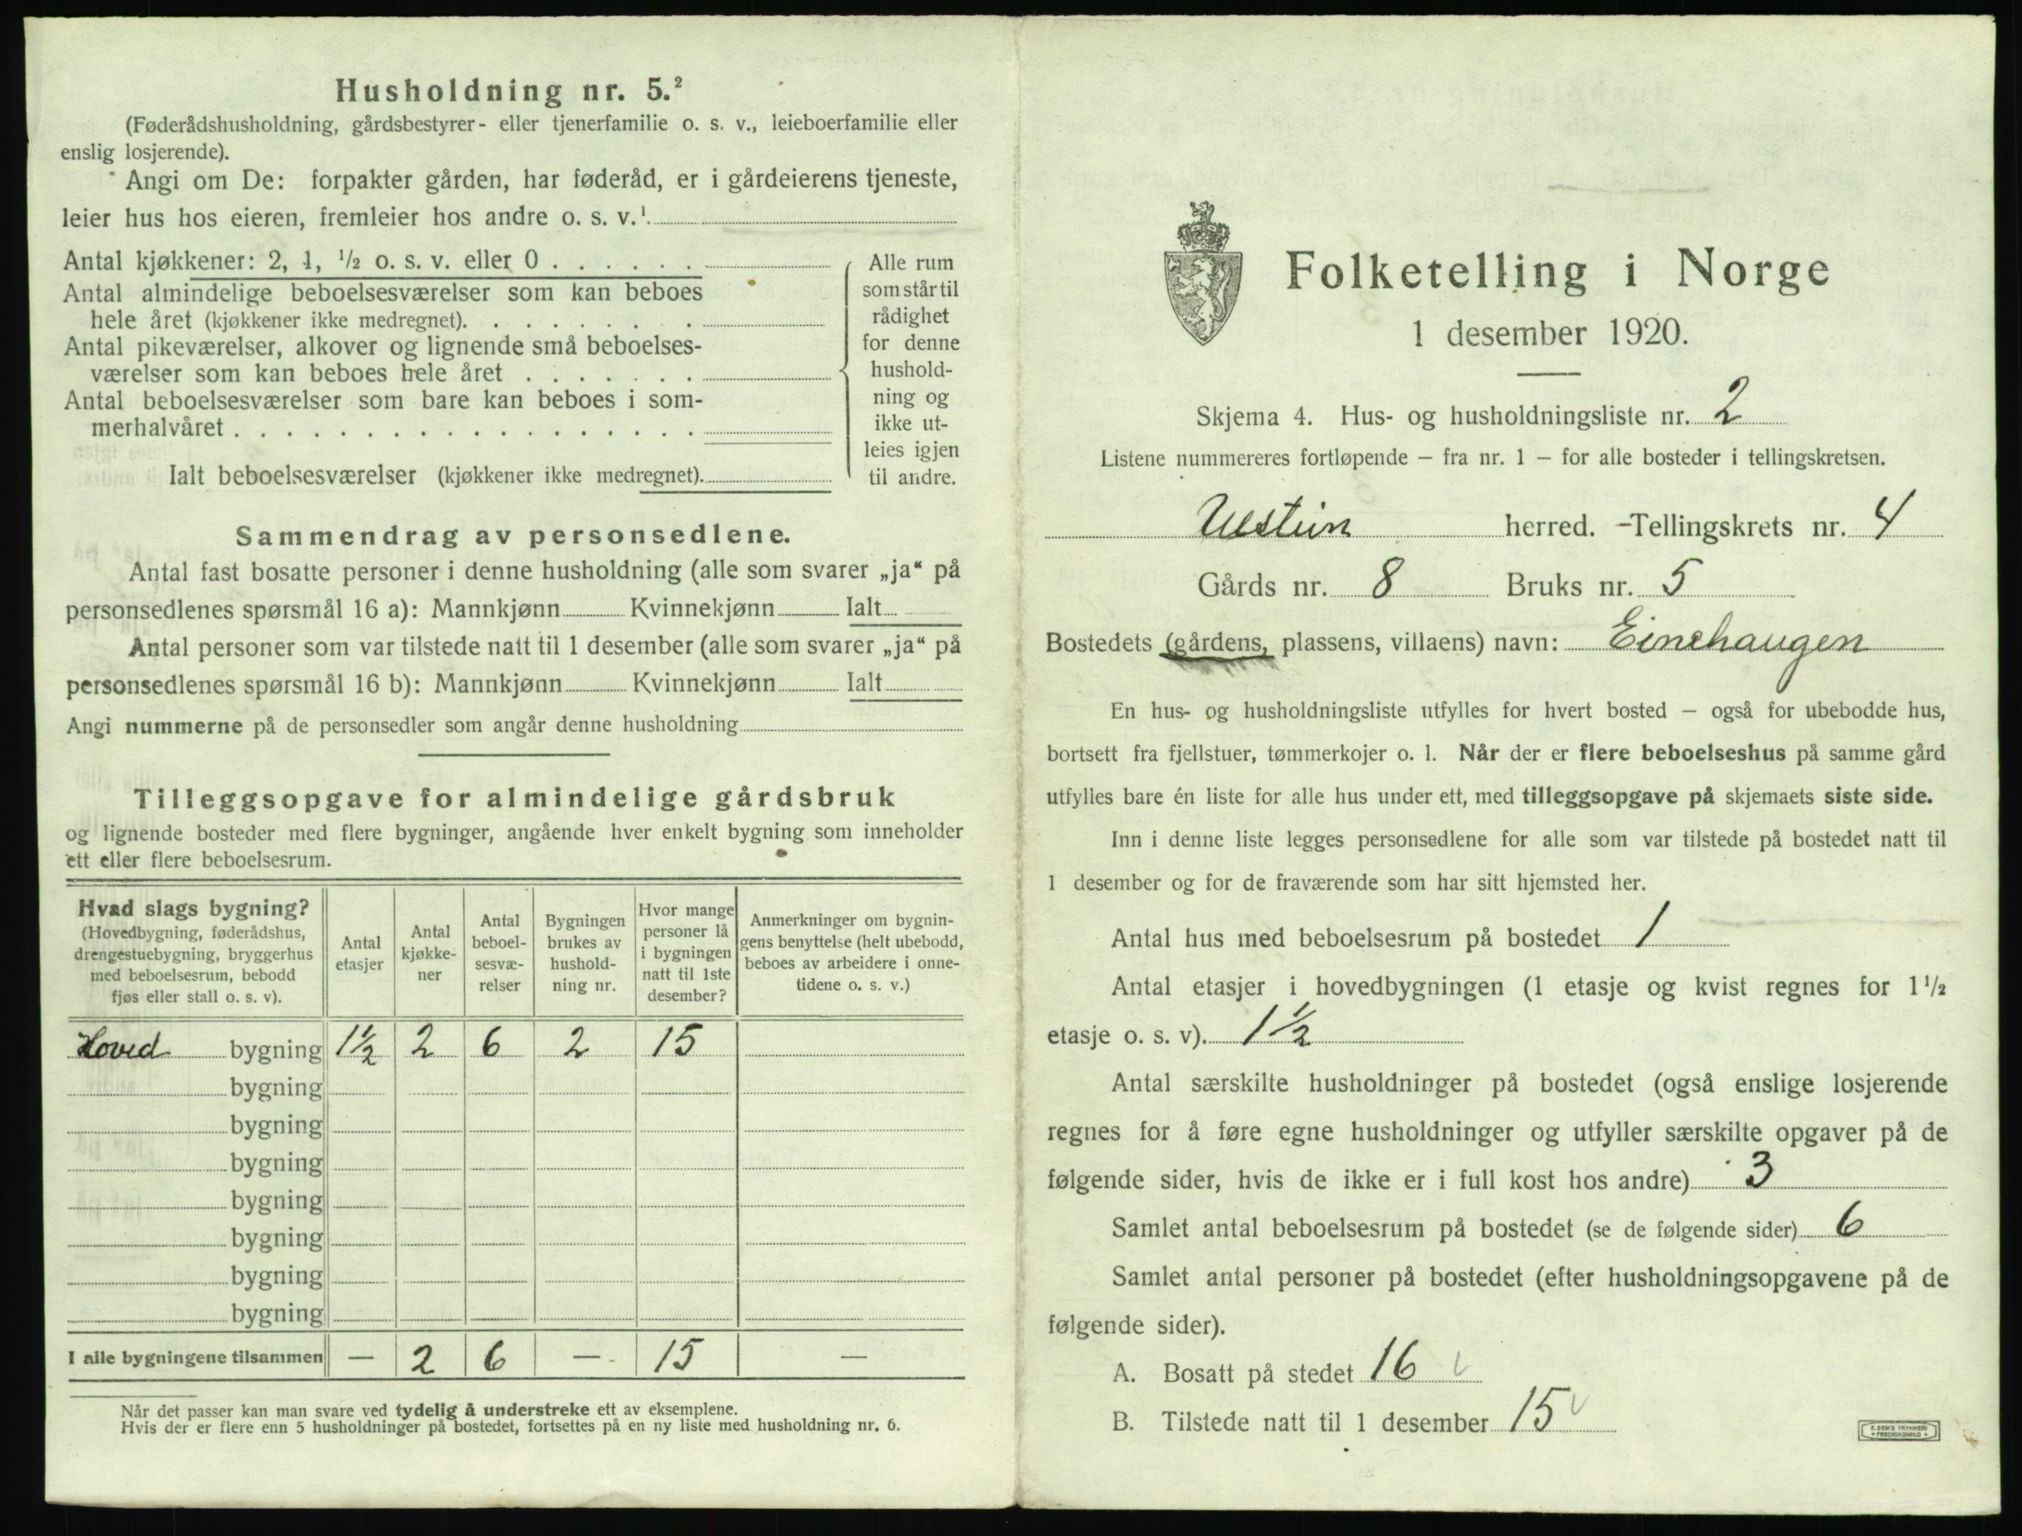 Husholdning nr. 5.²
(Føderådshusholdning, gårdsbestyrer- eller tjenerfamilie o. s. v., leieboerfamilie eller
enslig losjerende).
Angi om De: forpakter gården, har føderåd, er i gårdeierens tjeneste,
leier hus hos eieren, fremleier hos andre o. s. v.¹
Antal kjøkkener: 2, 1, ½ o. s. v. eller 0 . . . . . .
Antal almindelige beboelsesværelser som kan beboes
hele året (kjøkkener ikke medregnet). . . . . . . .
Antal pikeværelser, alkover og lignende små beboelses-
værelser som kan beboes hele året . . . . . . .
Antal beboelsesværelser som bare kan beboes i som-
merhalvåret . . . . . . . . . . . . . . . . . .
Ialt beboelsesværelser (kjøkkener ikke medregnet).
Alle rum
som står til
rådighet
for denne
hushold-
ning og
ikke ut-
leies igjen
til andre.
Sammendrag av personsedlene.
Antal fast bosatte personer i denne husholdning (alle som svarer „ja“ på
personsedlenes spørsmål 16 a): Mannkjønn Kvinnekjønn Ialt
Antal personer som var tilstede natt til 1 desember (alle som svarer „ja“ på
personsedlenes spørsmål 16 b): Mannkjønn Kvinnekjønn Ialt
Angi nummerne på de personsedler som angår denne husholdning
Tilleggsopgave for almindelige gårdsbruk
og lignende bosteder med flere bygninger, angående hver enkelt bygning som inneholder
ett eller flere beboelsesrum.
Hvad slags bygning?
(Hovedbygning, føderådshus,
drengestuebygning, bryggerhus
med beboelsesrum, bebodd
fjøs eller stall o. s. v).
Antal
etasjer
Antal
kjøkke-
ner
Antal
beboel-
sesvæ-
relser
Bygningen
brukes av
hushold-
ning nr.
Hvor mange
personer lå
i bygningen
natt til 1ste
desember?
Anmerkninger om bygnin-
gens benyttelse (helt ubebodd,
beboes av arbeidere i onne-
tidene o. s. v.)
Hoved bygning 1½ 2 6 2 15
bygning
bygning
bygning
bygning
bygning
bygning
bygning
I alle bygningene tilsammen — 2 6 — 15 —
Når det passer kan man svare ved tydelig å understreke ett av eksemplene.
Hvis der er flere enn 5 husholdninger på bostedet, fortsettes på en ny liste med husholdning nr. 6.
Folketelling i Norge
1 desember 1920.
Skjema 4. Hus- og husholdningsliste nr. 2
Listene nummereres fortløpende – fra nr. 1 – for alle bosteder i tellingskretsen.
Ulstein herred. – Tellingskrets nr. 4
Gårds nr. 8 Bruks nr. 5
Bostedets (gårdens, plassens, villaens) navn: Einehaugen
En hus- og husholdningsliste utfylles for hvert bosted – også for ubebodde hus,
bortsett fra fjellstuer, tømmerkojer o. l. Når der er flere beboelseshus på samme gård
utfylles bare én liste for alle hus under ett, med tilleggsopgave på skjemaets siste side.
Inn i denne liste legges personsedlene for alle som var tilstede på bostedet natt til
1 desember og for de fraværende som har sitt hjemsted her.
Antal hus med beboelsesrum på bostedet 1
Antal etasjer i hovedbygningen (1 etasje og kvist regnes for 1½
etasje o. s. v). 1½
Antal særskilte husholdninger på bostedet (også enslige losjerende
regnes for å føre egne husholdninger og utfyller særskilte opgaver på de
følgende sider, hvis de ikke er i full kost hos andre) 3
Samlet antal beboelsesrum på bostedet (se de følgende sider) 6
Samlet antal personer på bostedet (efter husholdningsopgavene på de
følgende sider).
A. Bosatt på stedet 16
B. Tilstede natt til 1 desember 15